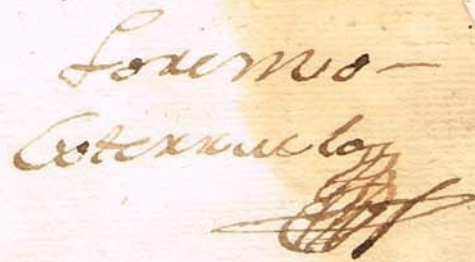 Lorenzo
Coterruelo